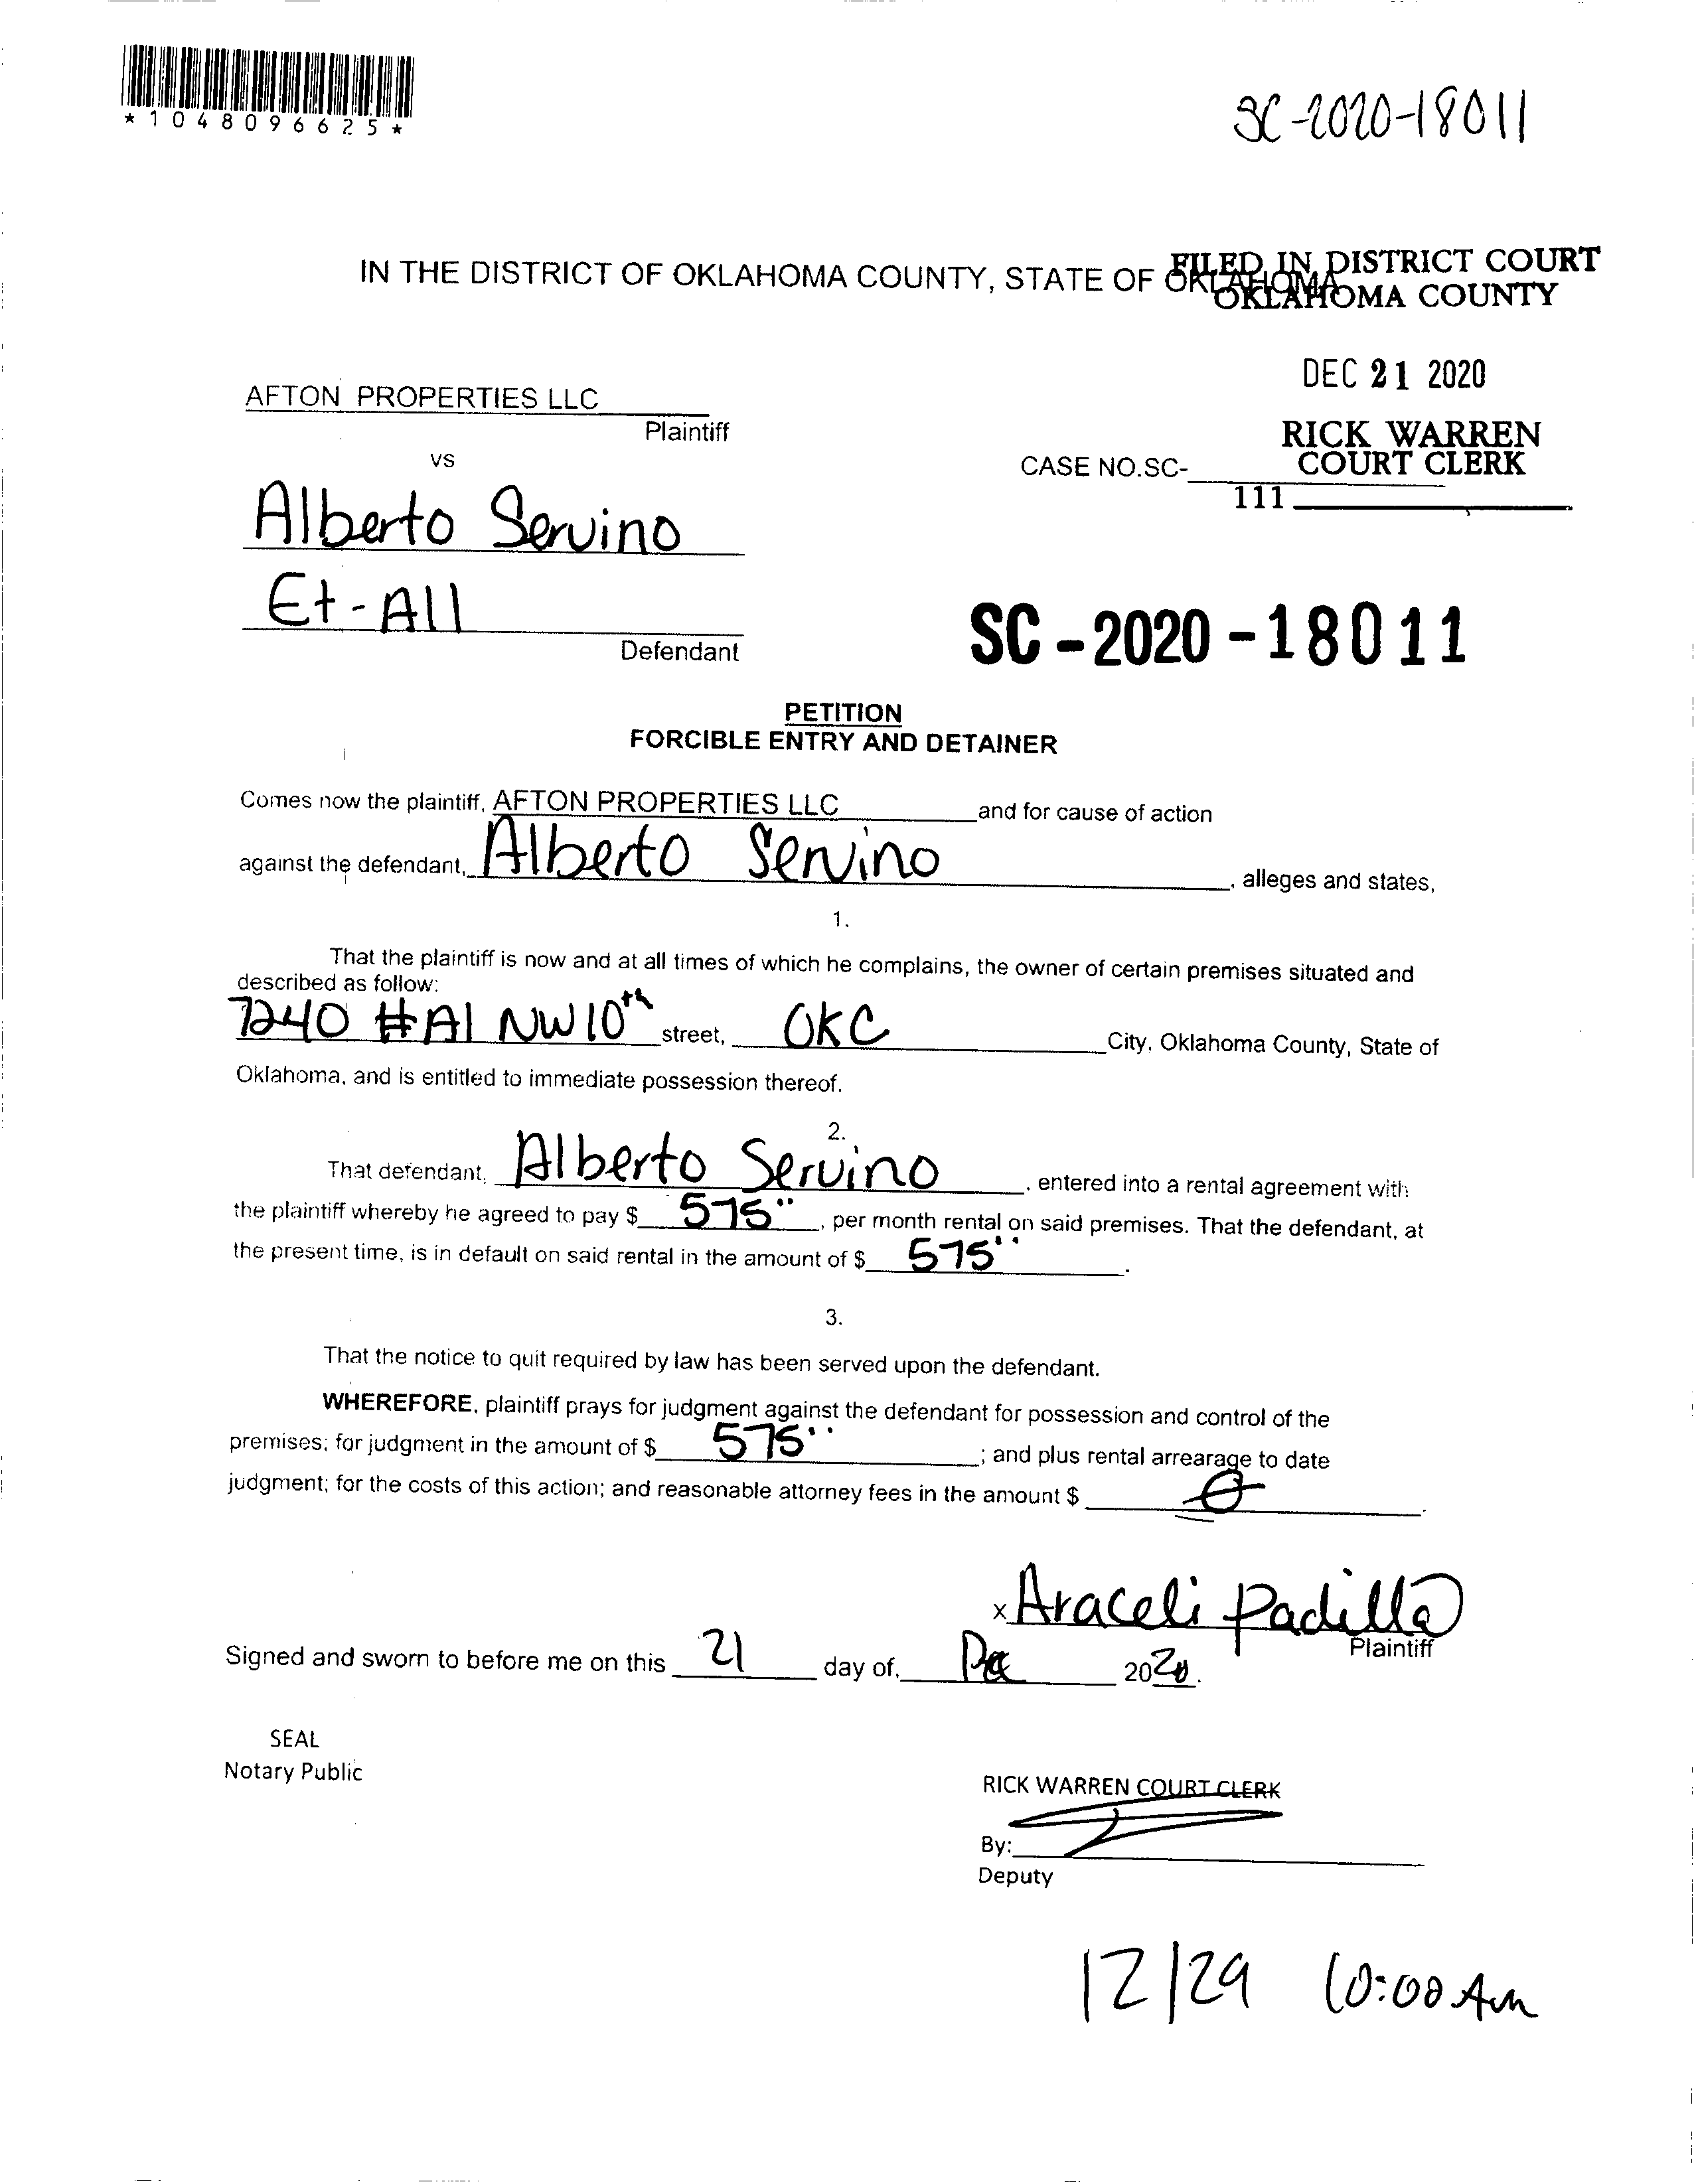 *1048096625*
SC-2020-18011
IN THE DISTRICT OF OKLAHOMA COUNTY, STATE OF OKLAHOMA
FILED IN DISTRICT COURT
OKLAHOMA COUNTY
DEC 21 2020
AFTON PROPERTIES LLC
Plaintiff
RICK WARREN
vs
CASE NO.SC- COURT CLERK
111
Alberto Servino
Et-All
Defendant
SC-2020-18011
PETITION
FORCIBLE ENTRY AND DETAINER
Comes now the plaintiff, AFTON PROPERTIES LLC and for cause of action
against the defendant, Alberto Servino, alleges and states,
1.
That the plaintiff is now and at all times of which he complains, the owner of certain premises situated and
described as follow:
7240 #A1 NW 10th street, OKC City, Oklahoma County, State of
Oklahoma, and is entitled to immediate possession thereof.
2.
That defendant, Alberto Servino, entered into a rental agreement with
the plaintiff whereby he agreed to pay $ 575.., per month rental on said premises. That the defendant, at
the present time, is in default on said rental in the amount of $ 575...
3.
That the notice to quit required by law has been served upon the defendant.
WHEREFORE, plaintiff prays for judgment against the defendant for possession and control of the
premises; for judgment in the amount of $ 575..; and plus rental arrearage to date
judgment; for the costs of this action; and reasonable attorney fees in the amount $ 0.
x Araceli Padilla
Plaintiff
Signed and sworn to before me on this 21 day of, Dec 2020.
SEAL
Notary Public
RICK WARREN COURT CLERK
By:
Deputy
12/29 10:00 Am